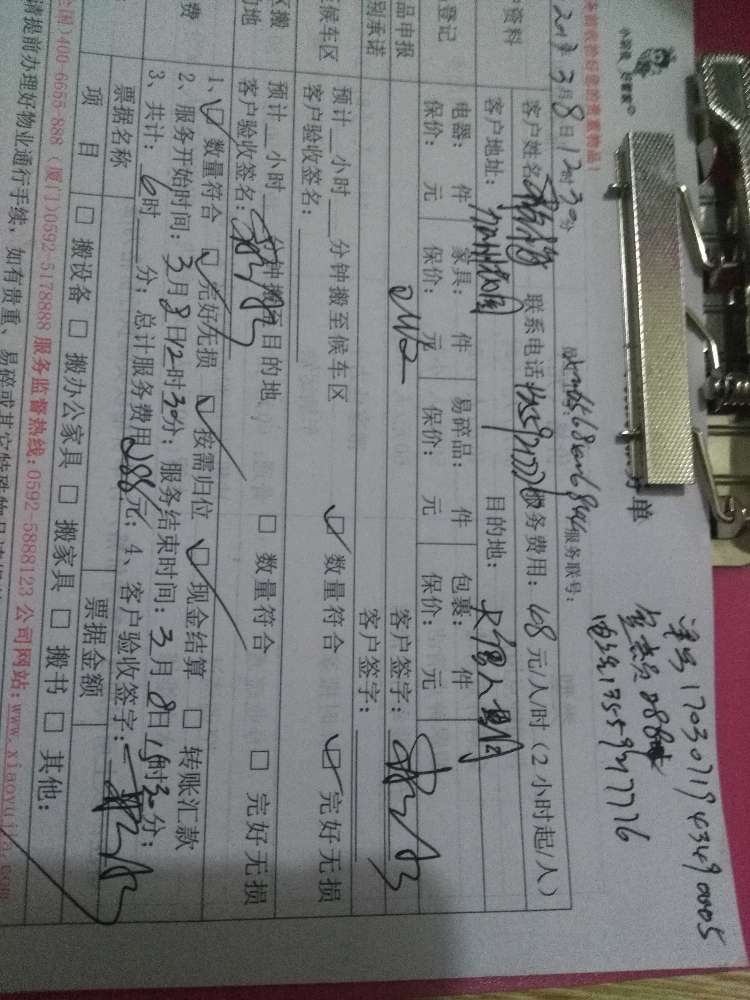 单号1703071943490005
电话13559217776
小羽佳 尽管家
分单
服务联号:
3月8日12时30分
种资料
客户姓名: 联系电话: 服务费用:48元/人/时(2小时起/人)
客户地址: 目的地:
登记
电器: 件 家具: 件 易碎品: 件 包裹: 件
保价: 元 保价: 元 保价: 元 保价: 元
品申报
别承诺
客户签字:
客户签字:
候车区
预计 小时 分钟搬至候车区 数量符合 完好无损
客户验收签名:
区搬
的地
预计 小时 分钟搬至目的地 数量符合 完好无损
客户验收签名:
1、数量符合 完好无损 按需归位 现金结算 转账汇款
2、服务开始时间:3月8日12时30分;服务结束时间:3月8日15时30分;
3、共计:6时 分;总计服务费用288元;4、客户验收签字:
费
票据名称 票据金额
项 目 搬设备 搬办公家具 搬家具 搬书 其他:
全国)400-6655-888 (厦门)0592-5178888 服务监督热线:0592-5888123 公司网站:www.xiaoyujia.com
请提前办理好物业通行手续,如有贵重、易碎或其它特殊物品请